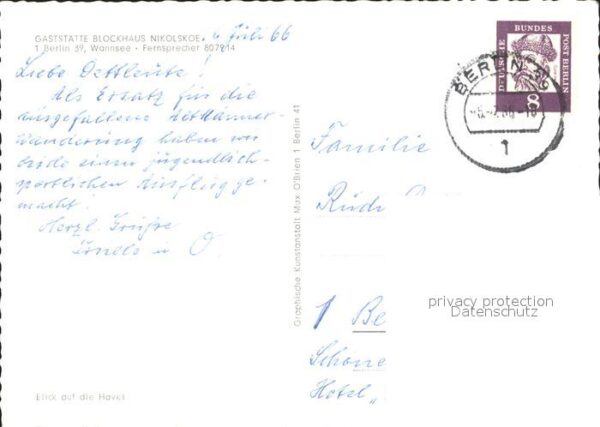 GASTSTÄTTE BLOCKHAUS NIKOLSKOE
1 Berlin 39, Wannsee - Fernsprecher 807914
Juli 66
Liebe
Als Ersatz für die
ausgefallene
Wanderung haben wir
beide einen jugendlich-
sportlichen Ausflug ge-
macht!
Herzl. Grüße
u. O.
Blick auf die Havel
Graphische Kunstanstalt Max O'Brien 1 Berlin 41
DEUTSCHE BUNDES POST BERLIN
8
BERLIN 39
1
Familie
1 Be
Hotel „
privacy protection
Datenschutz